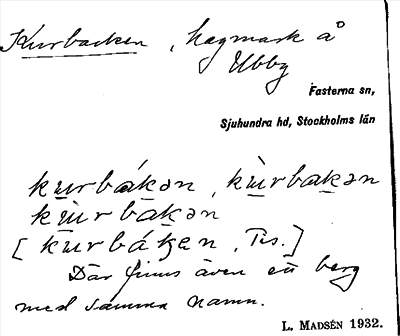 Kurbacken, hagmark å
Ubby
Fasterna sn,
Sjuhundra hd, Stockholms län
kurbákən, kùrbakən
kùrbakən
[kurbáken, Tis.]
Där finns även ett berg
med samma namn.
L. MADSÉN 1932.